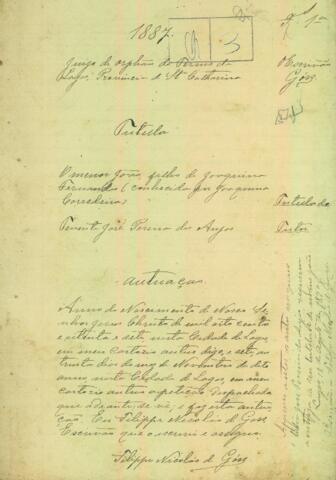 1887
Nº 1
Juizo de Orphãos do Termo de
Lages, Provincia de Sta Catharina
O Escrivão
Góss
Tutella
O menor João, filho de Joaquina
Fernandes (conhecida por Joaquina
Corredeira)
Tutelado
Tenente José Pereira dos Anjos
Tutor
Autuação
Anno do Nascimento de Nosso Se-
nhor Jesus Christo de mil oito centos
e oitenta e sete, nesta Cidade de Lages,
em meu cartorio autuo digo, e sete, aos
trinta dias do mez de Novembro do dito
anno nesta Cidade de Lages, em meu
cartorio autuo a petição despachada
que adiante se vê; e faço esta autua-
ção. Eu Filippe Nicoláo de Góss
Escrivão que o escrevi e assigno.
Filippe Nicoláo de Góss